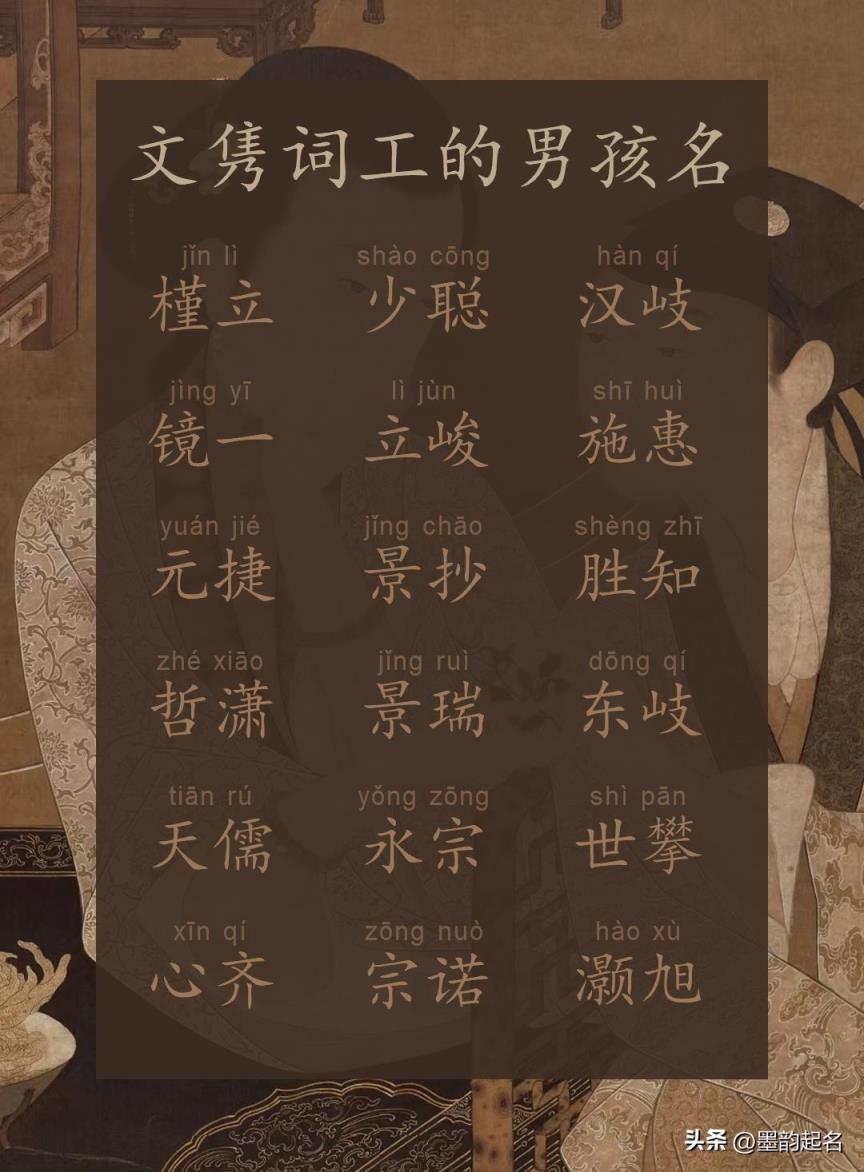 文隽词工的男孩名
jǐn lì shào cōng hàn qí
槿立 少聪 汉岐
jìng yī lì jùn shī huì
镜一 立峻 施惠
yuán jié jǐng chāo shèng zhī
元捷 景抄 胜知
zhé xiāo jǐng ruì dōng qí
哲潇 景瑞 东岐
tiān rú yǒng zōng shì pān
天儒 永宗 世攀
xīn qí zōng nuò hào xù
心齐 宗诺 灏旭
头条 @墨韵起名